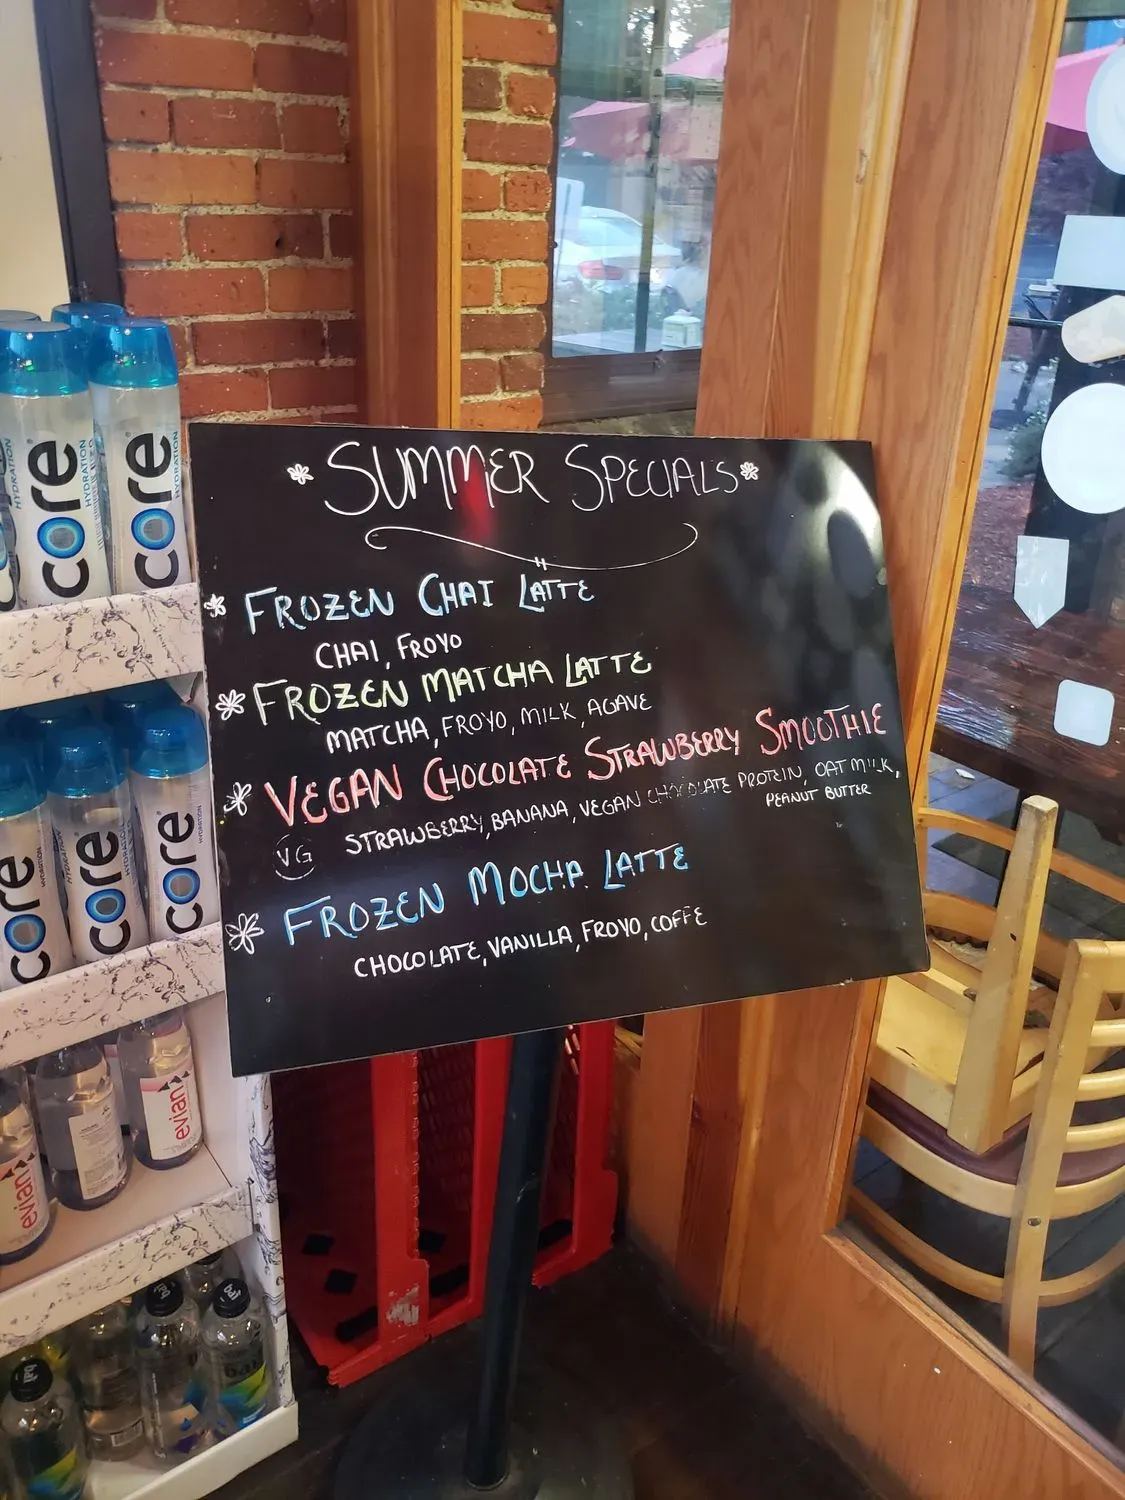 SUMMER SPECIALS
FROZEN CHAI LATTE
CHAI, FROYO
FROZEN MATCHA LATTE
MATCHA, FROYO, MILK, AGAVE
VEGAN CHOCOLATE STRAWBERRY SMOOTHIE
VG
STRAWBERRY, BANANA, VEGAN CHOCOLATE PROTEIN, OAT MILK,
PEANUT BUTTER
FROZEN MOCHA LATTE
CHOCOLATE, VANILLA, FROYO, COFFE
core
HYDRATION
core
HYDRATION
core
core
core
HYDRATION
evian
evian
bai
bai